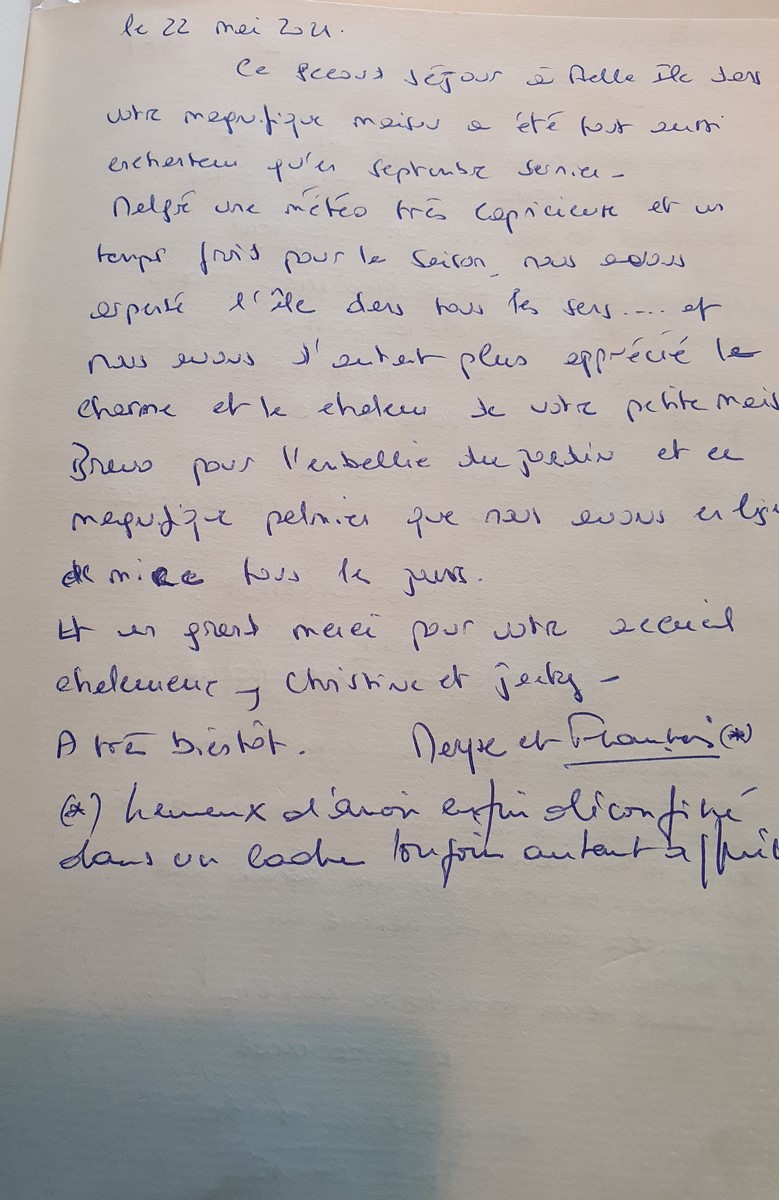 le 22 mai 2021.
Ce second séjour à Belle Île dans
votre magnifique maison a été tout aussi
enchanteur qu'en septembre dernier -
Malgré une météo très capricieuse et un
temps frais pour la saison, nous avons
arpenté l'île dans tous les sens .... et
nous avons d'autant plus apprécié le
charme et la chaleur de votre petite mais
Bravo pour l'embellie du jardin et ce
magnifique palmier que nous avons en lign
de mire tous les jours.
Et un grand merci pour votre accueil
chaleureux, Christine et Jacky -
A très bientôt. et François (*)
(*) heureux d'avoir enfin déconfiné
dans un cadre toujours autant